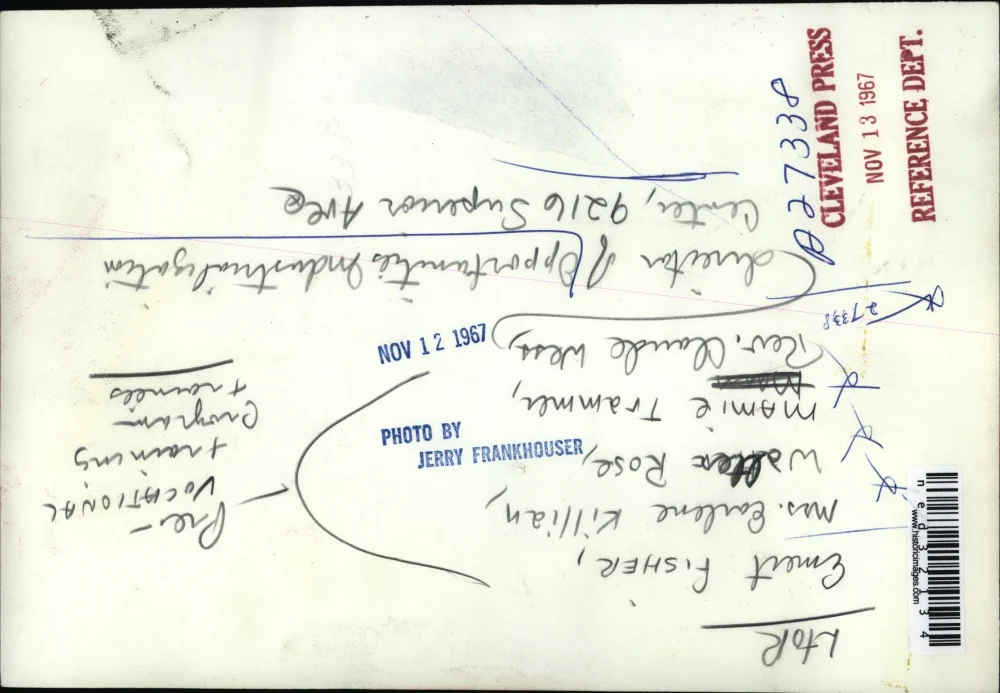 LtoR
Ernest FISHER,
Mrs. Earlene Killian,
Walter Rose,
Mamie Trammer,
Rev. Claude Wess,
director of Opportunities Industrialization
Center, 9216 Superior Ave
Pre-
VOCATIONAL
training
program
trainees
PHOTO BY
JERRY FRANKHOUSER
NOV 12 1967
27338
A27338
CLEVELAND PRESS
NOV 13 1967
REFERENCE DEPT.
www.historicimages.com
ned32134